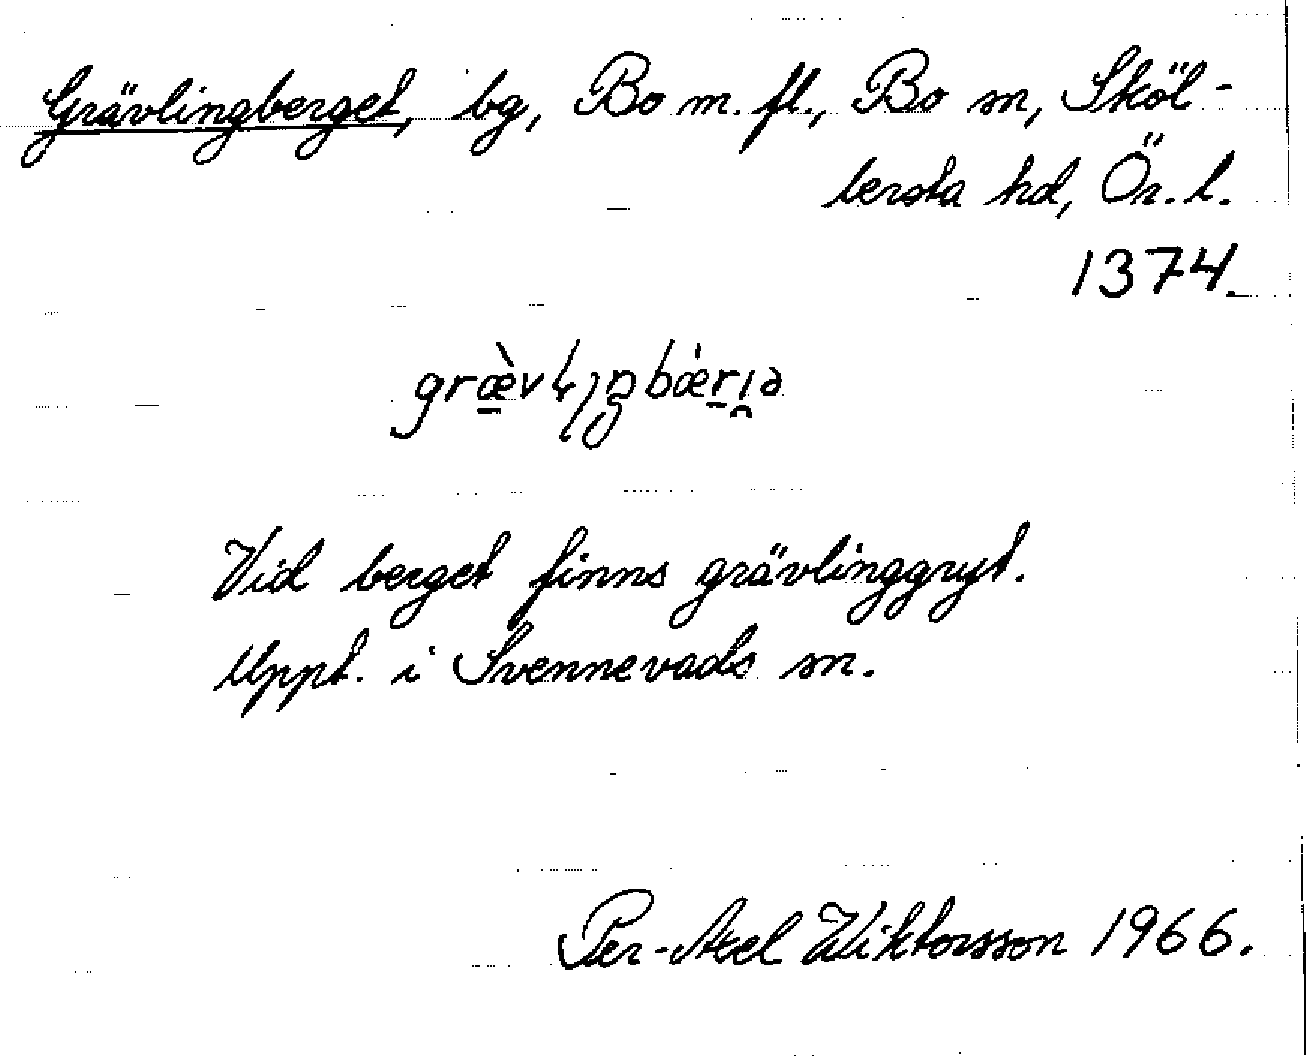 Grävlingberget, bg, Bo m. fl., Bo sn, Sköl-
lersta hd, Ör. l.
1374.
Vid berget finns grävlinggryt.
Uppt. i Svennevads sn.
Per-Axel Wiktorsson 1966.